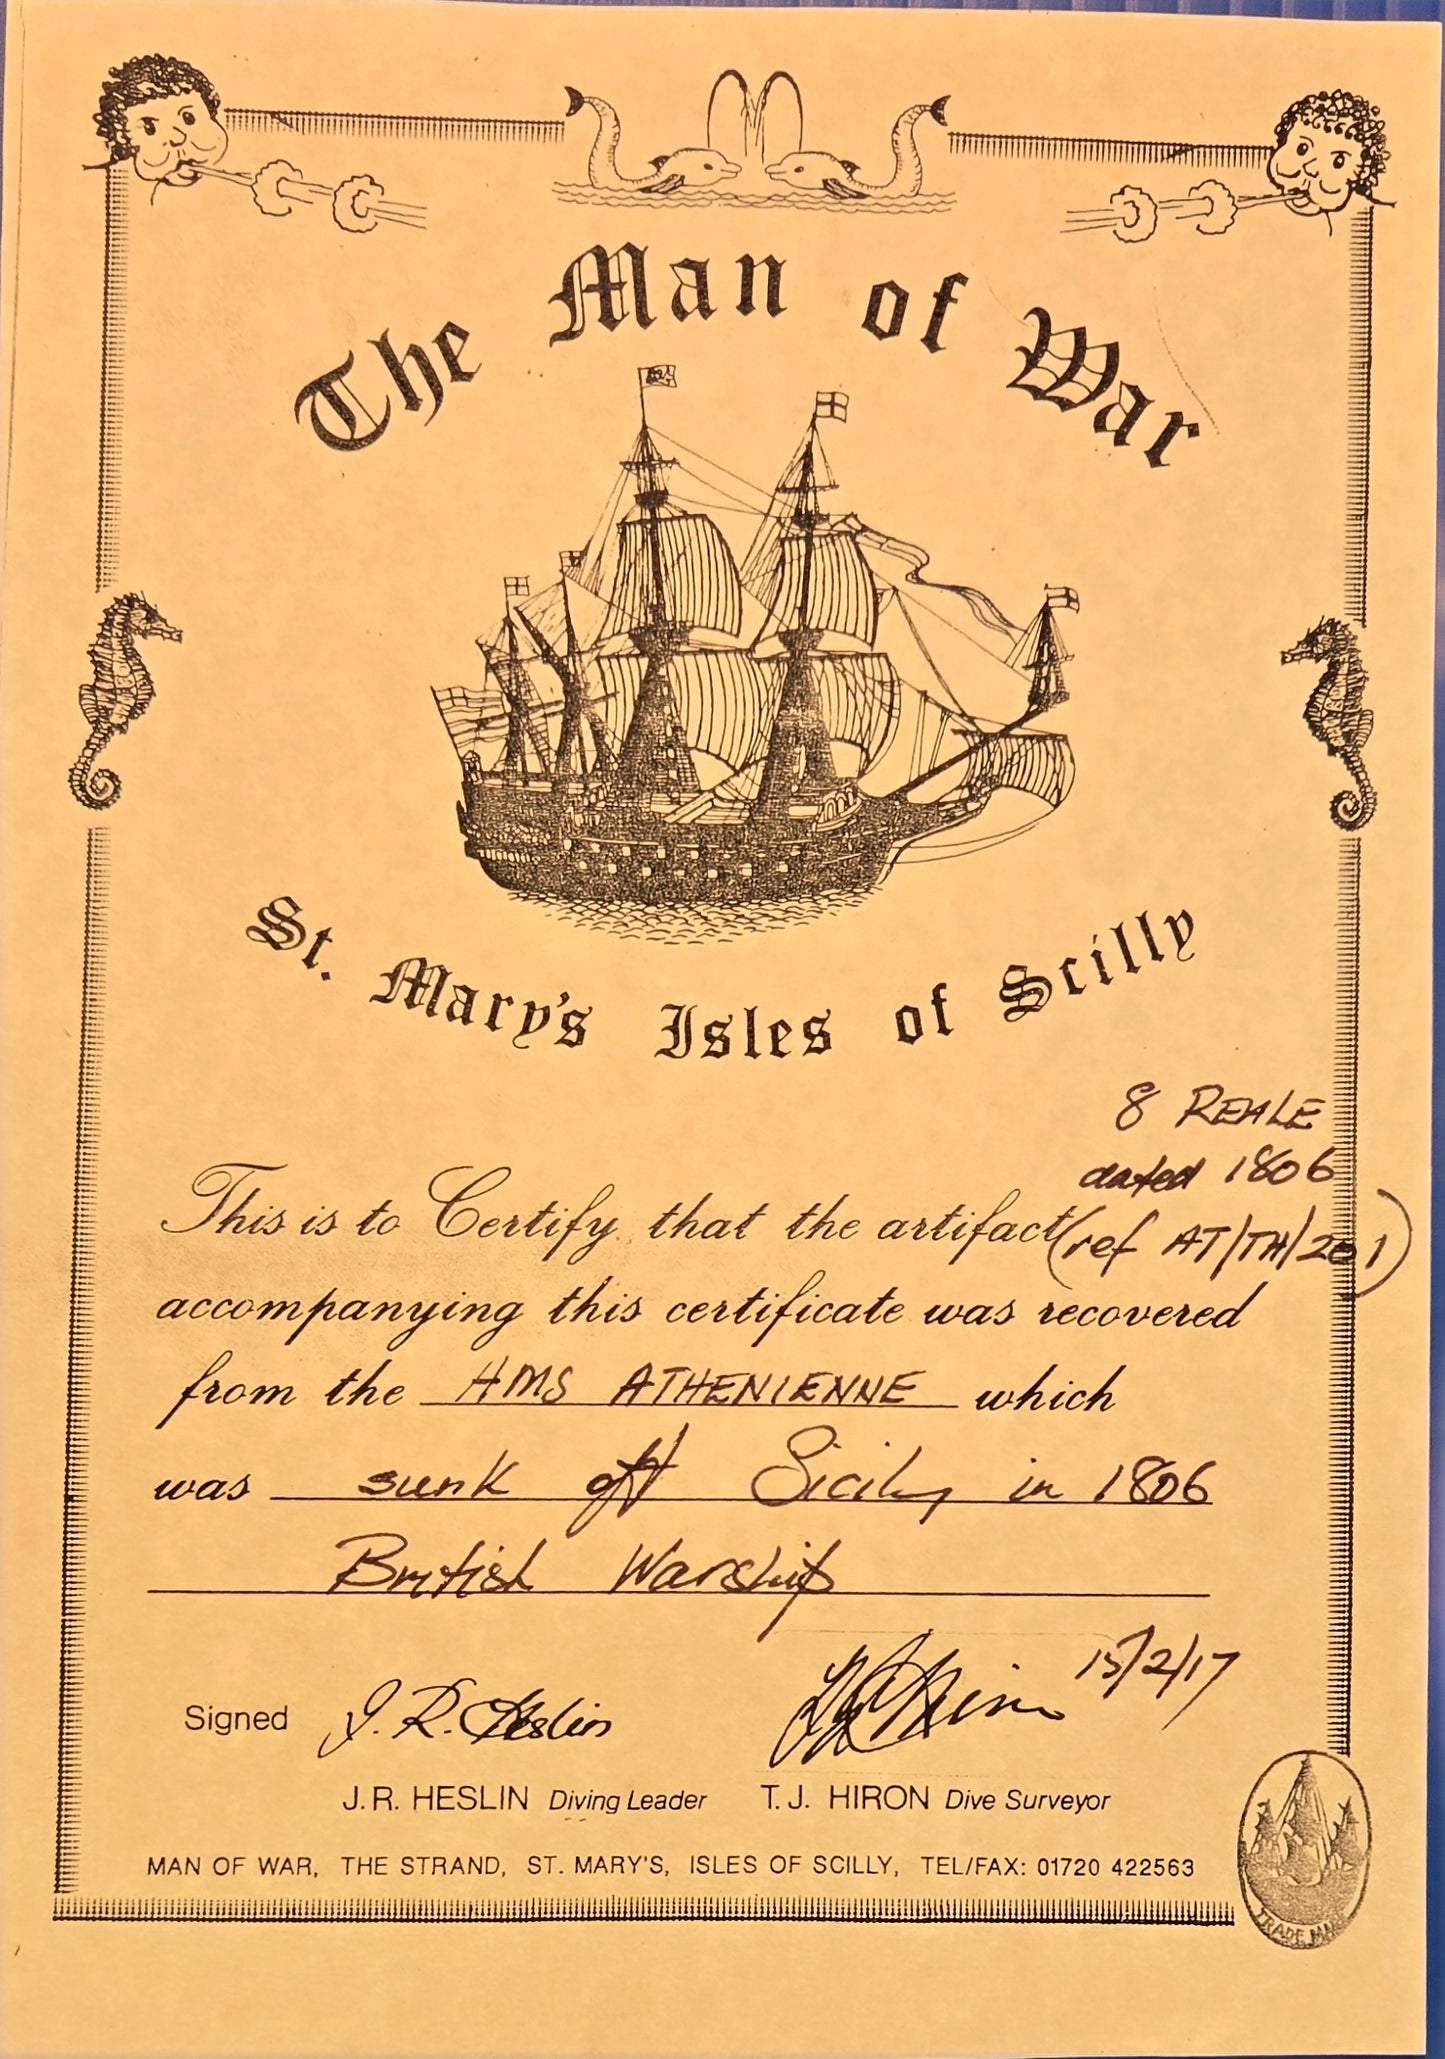 The Man of War
St. Mary's Isles of Scilly
8 REALE
dated 1806
This is to Certify that the artifact (ref AT/TH/201)
accompanying this certificate was recovered
from the HMS ATHENIENNE which
was sunk off Sicily in 1806
British Warship
15/2/17
Signed J. R. Heslin T J Hiron
J.R. HESLIN Diving Leader T. J. HIRON Dive Surveyor
MAN OF WAR, THE STRAND, ST. MARY'S, ISLES OF SCILLY, TEL/FAX: 01720 422563
TRADE